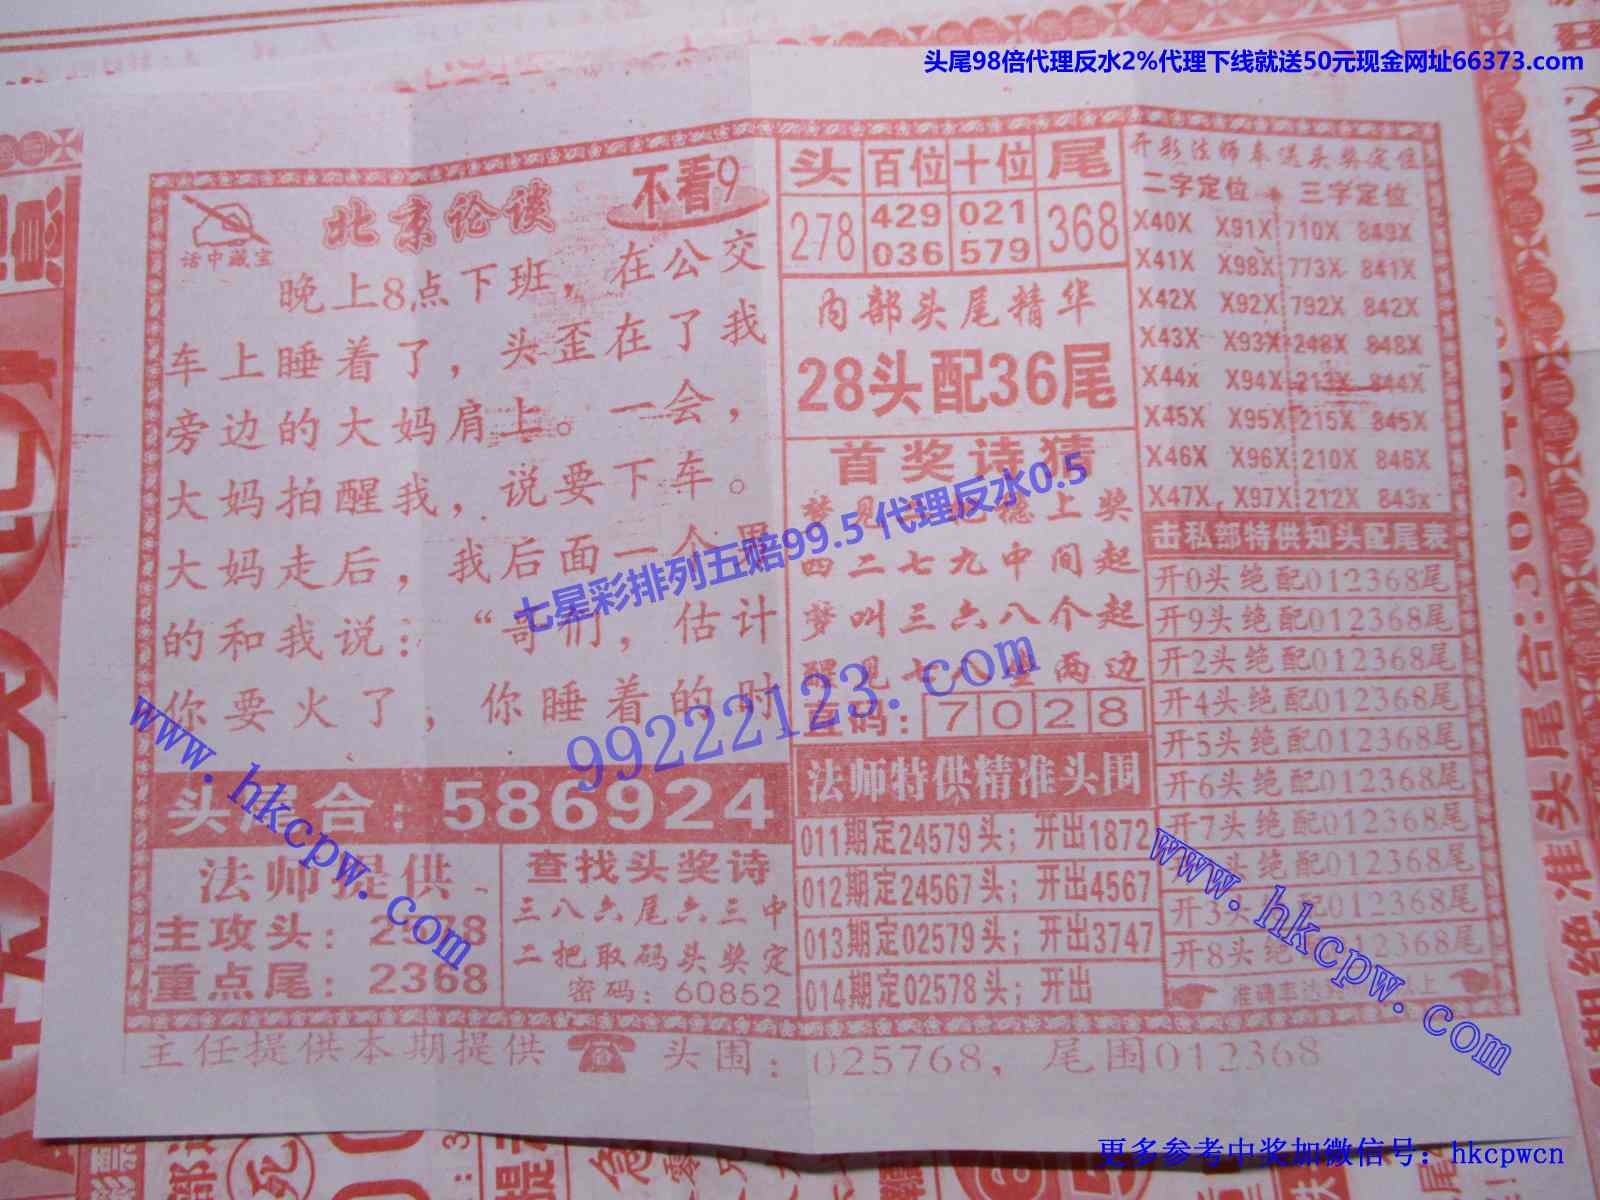 头尾98倍代理反水2%代理下线就送50元现金网址66373.com
话中藏宝
北京论谈
不看9
晚上8点下班，在公交
车上睡着了，头歪在了我
旁边的大妈肩上。一会，
大妈拍醒我，说要下车。
大妈走后，我后面一个
的和我说：“哥们，估计
你要火了，你睡着的时
头尾合：586924
法师提供
主攻头：2 8
重点尾：2368
查找头奖诗
三八六尾六三中
二把取码头奖定
密码：60852
头 百位 十位 尾
278 429 021 368
036 579
内部头尾精华
28头配36尾
首奖诗猜
梦见 上奖
四二七九中间起
梦叫三六八个起
醒见七八坐两边
直码：7028
法师特供精准头围
011期定24579头；开出1872
012期定24567头；开出4567
013期定02579头；开出3747
014期定02578头；开出
开彩法师奉送头奖定位
二字定位 三字定位
X40X X91X 710X 849X
X41X X98X 773X 841X
X42X X92X 792X 842X
X43X X93X 248X 848X
X44x X94X 213X 844X
X45X X95X 215X 845X
X46X X96X 210X 846X
X47X X97X 212X 843x
击私部特供知头配尾表
开0头绝配012368尾
开9头绝配012368尾
开2头绝配012368尾
开4头绝配012368尾
开5头绝配012368尾
开6头绝配012368尾
开7头绝配012368尾
头绝配012368尾
开3头 012368尾
开8头绝 012368尾
准确率达 上
主任提供本期提供 头围：025768，尾围012368
七星彩排列五赔99.5 代理反水0.5
99222123.com
www.hkcpw.com
www.hkcpw.com
更多参考中奖加微信号：hkcpwcn